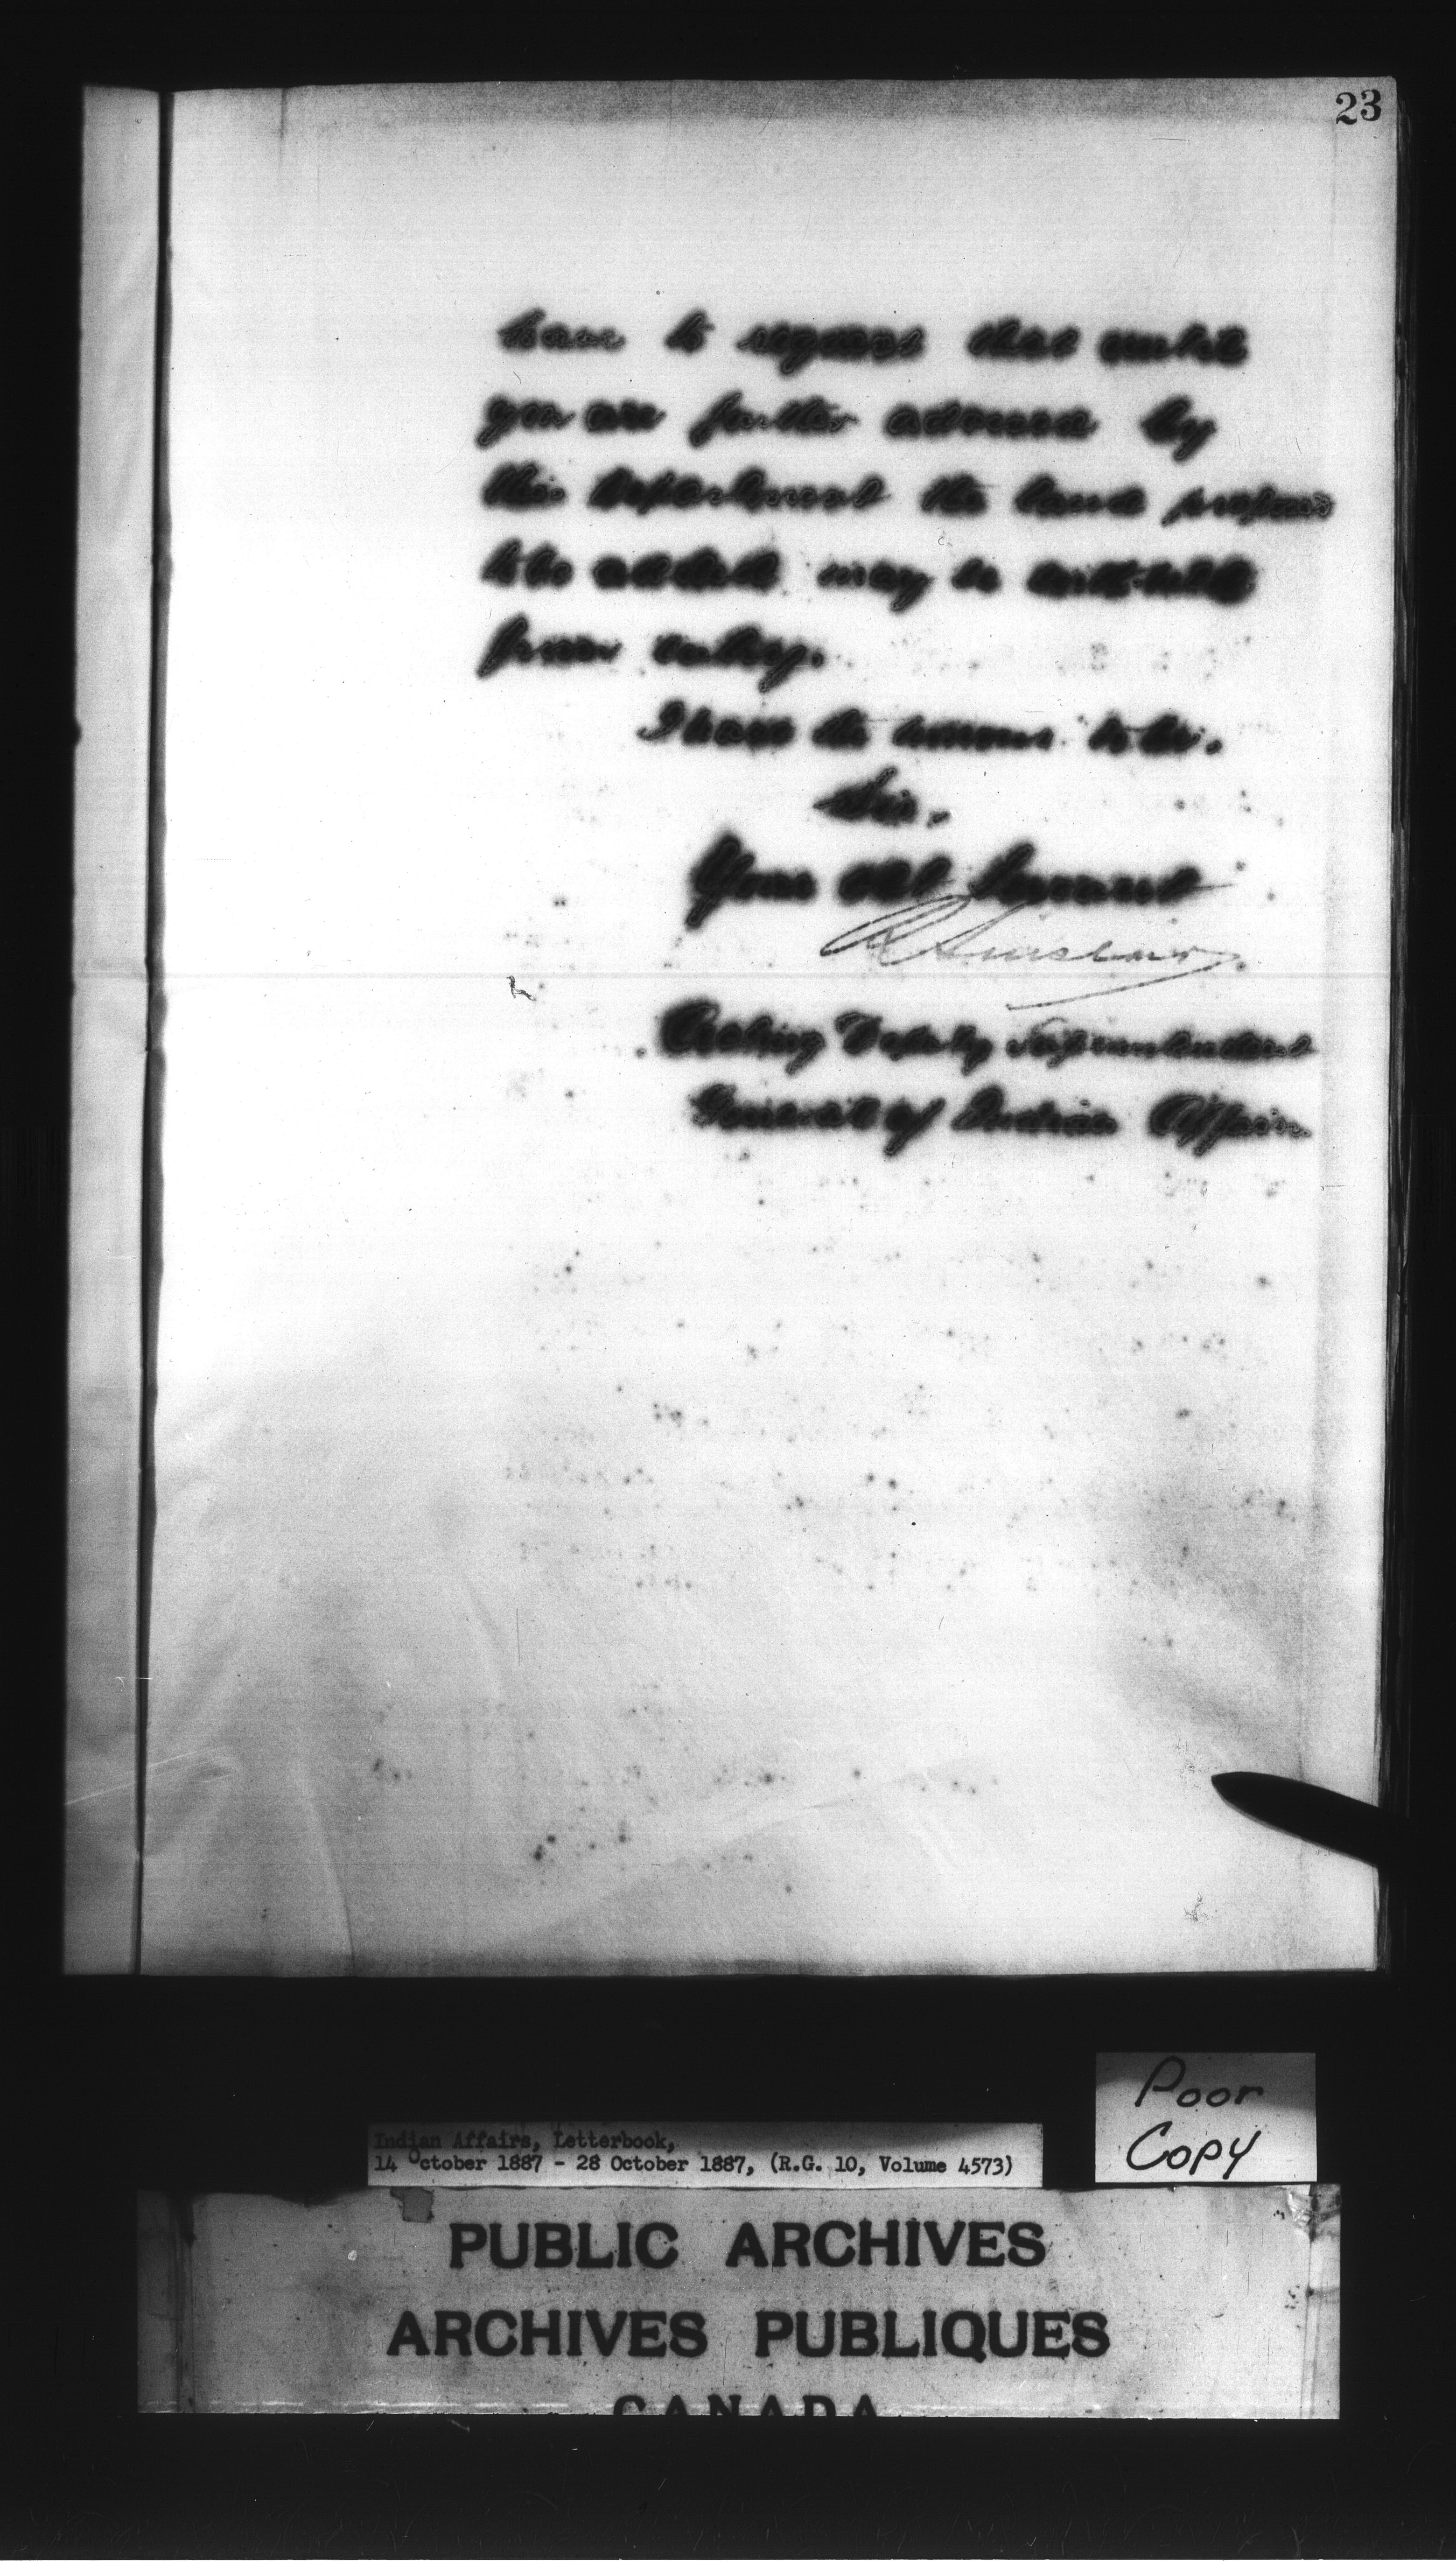 23
have to request that until
you are further advised by
this Department the lands proposed
to be added may be withheld
from entry.
I have the honour to be.
Sir.
Your Obt Servant
R Sinclair.
Acting Deputy Superintendent
General of Indian Affairs
Poor
Copy
Indian Affairs, Letterbook,
14 October 1887 - 28 October 1887, (R.G. 10, Volume 4573)
PUBLIC ARCHIVES
ARCHIVES PUBLIQUES
CANADA